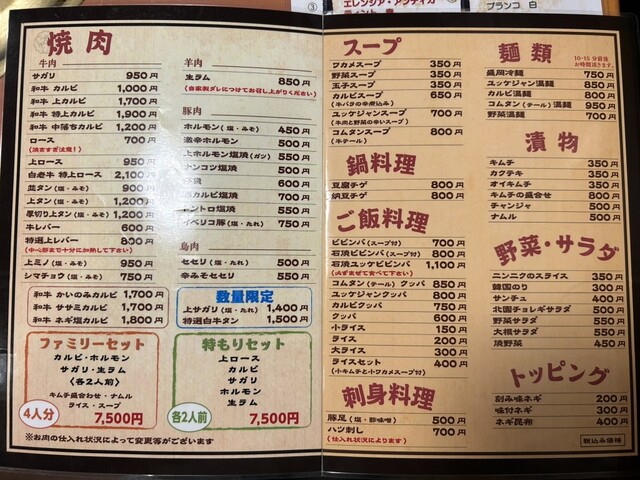 ③
エレンシア・アンティカ
ブランコ 白
焼肉
牛肉
サガリ 950円
和牛 カルビ 1,000円
和牛 上カルビ 1,700円
和牛 特上カルビ 1,900円
和牛 中落ちカルビ 1,200円
ロース 700円
(焼きすぎ注意!)
上ロース 950円
白老牛 特上ロース 2,100円
並タン(塩・みそ) 900円
上タン(塩・みそ) 1,200円
厚切り上タン(塩・みそ) 1,200円
牛レバー 600円
特選上レバー 800円
(中心部まで十分に加熱して下さい)
上ミノ(塩・みそ) 950円
シマチョウ(塩・みそ) 750円
和牛 かいのみカルビ 1,700円
和牛 ササミカルビ 1,700円
和牛 ネギ塩カルビ 1,800円
ファミリーセット
カルビ・ホルモン
サガリ・生ラム
〈各2人前〉
キムチ盛合わせ・ナムル
ライス・スープ
4人分 7,500円
※お肉の仕入れ状況によって変更等がございます
羊肉
生ラム 850円
(自家製ダレにつけてお召し上がりください)
豚肉
ホルモン(塩・みそ) 450円
激辛ホルモン 500円
上ホルモン塩焼(ガツ) 550円
ナンコツ塩焼 500円
500円
カルビ塩焼 700円
トントロ塩焼 550円
イベリコ豚(塩・たれ) 750円
鳥肉
セセリ(塩・たれ) 500円
辛みそセセリ 550円
数量限定
上サガリ(塩・たれ) 1,400円
特選白牛タン 1,500円
特もりセット
上ロース
カルビ
サガリ
ホルモン
生ラム
各2人前 7,500円
スープ
ワカメスープ 350円
野菜スープ 350円
玉子スープ 350円
カルビスープ 650円
(牛バラの辛煮込み)
ユッケジャンスープ 700円
(牛肉と野菜の辛いスープ)
コムタンスープ 800円
(牛テール)
鍋料理
豆腐チゲ 800円
納豆チゲ 800円
ご飯料理
ビビンバ(スープ付) 700円
石焼ビビンバ(スープ付) 800円
石焼ユッケビビンバ 1,100円
(必ずまぜて食べて下さい)
コムタン(テール)クッパ 850円
ユッケジャンクッパ 800円
カルビクッパ 750円
クッパ 600円
小ライス 150円
ライス 200円
大ライス 300円
ライスセット 400円
(小キムチと小ワカメスープ付)
刺身料理
豚足(塩・酢味噌) 500円
ハツ刺し 700円
(仕入れ状況によります)
麺類
10-15 分前後
お時間頂きます。
盛岡冷麺 750円
ユッケジャン温麺 850円
カルビ温麺 800円
コムタン(テール)温麺 950円
野菜温麺 700円
漬物
キムチ 350円
カクテキ 350円
オイキムチ 350円
キムチの盛合せ 800円
チャンジャ 500円
ナムル 500円
野菜・サラダ
ニンニクのスライス 350円
韓国のり 300円
サンチュ 400円
北園チョレギサラダ 500円
野菜サラダ 550円
大根サラダ 550円
焼野菜 450円
トッピング
刻み味ネギ 200円
味付ネギ 300円
ネギ昆布 400円
税込み価格